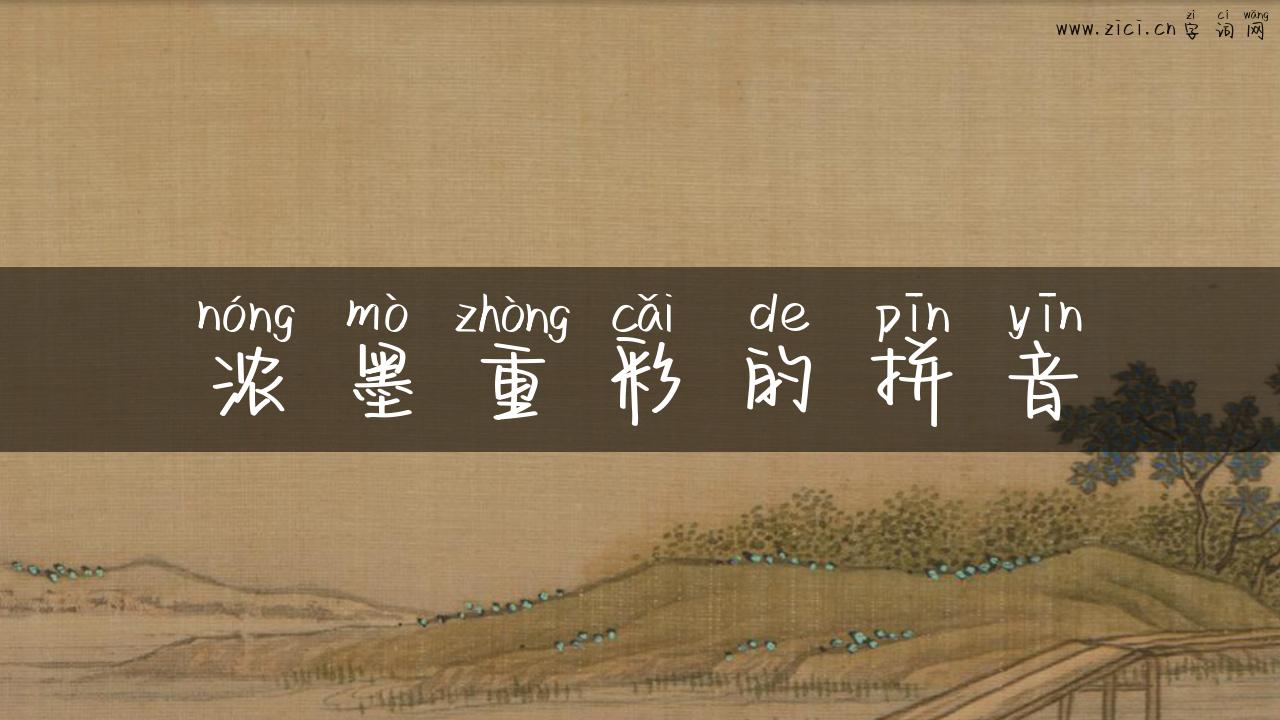 zì cí wǎng
www.zici.cn字词网
nóng mò zhòng cǎi de pīn yīn
浓墨重彩的拼音